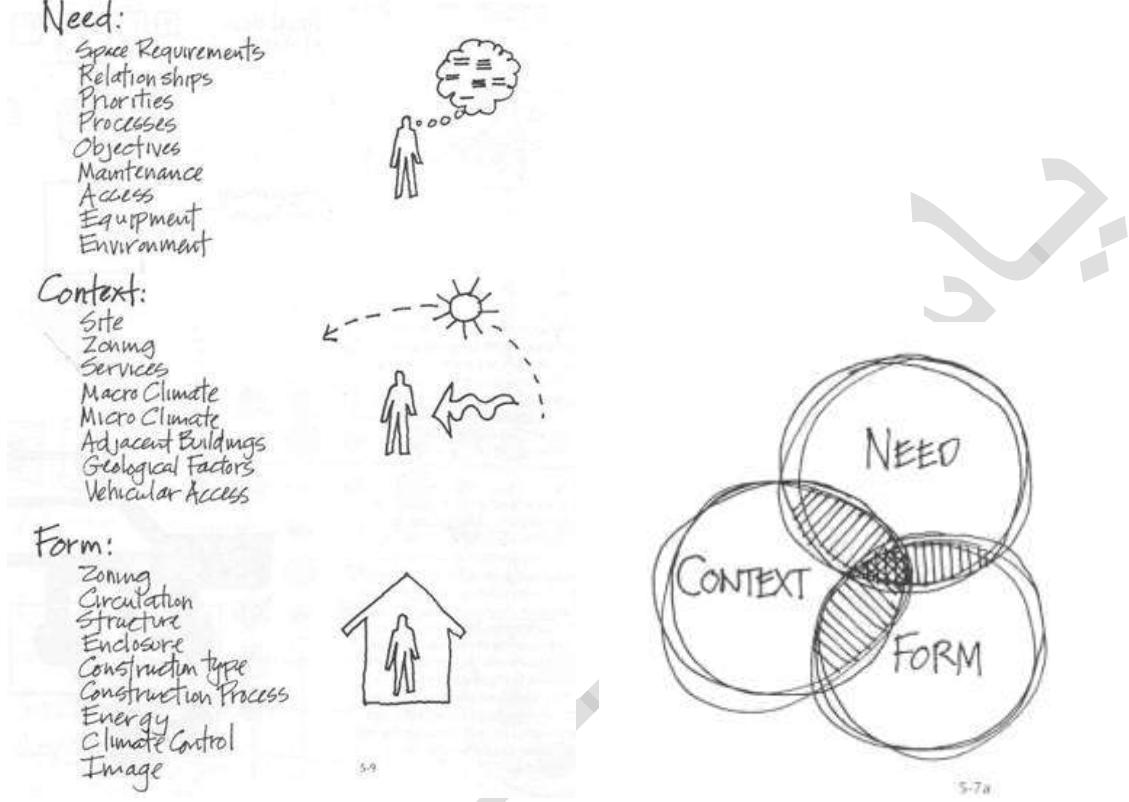 Need:
Space Requirements
Relationships
Priorities
Processes
Objectives
Maintenance
Access
Equipment
Environment
Context:
Site
Zoning
Services
Macro Climate
Micro Climate
Adjacent Buildings
Geological Factors
Vehicular Access
Form:
Zoning
Circulation
Structure
Enclosure
Construction type
Construction Process
Energy
Climate Control
Image
5-9
NEED
CONTEXT
FORM
5-7a